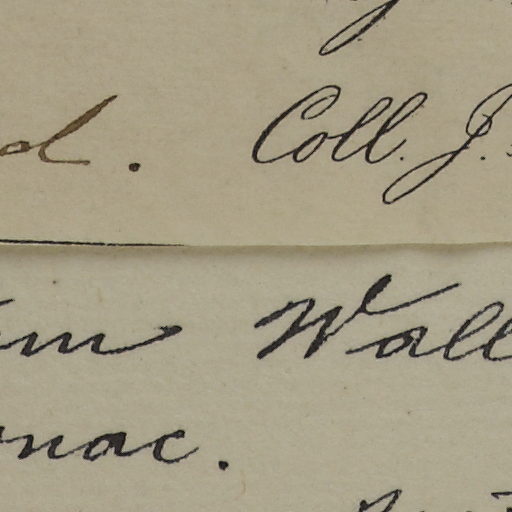 d. Coll. J.
m Wall
nac.